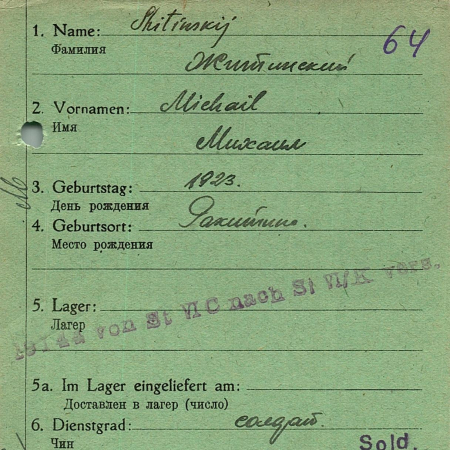 1. Name: Shitinskij
64
Фамилия
Житинский
2. Vornamen: Michail
Имя
Михаил
3. Geburtstag: 1923.
День рождения
4. Geburtsort: Ракитино.
Место рождения
von St VI C nach St VI/K vers.
5. Lager:
Лагер
5a. Im Lager eingeliefert am:
Доставлен в лагер (число)
6. Dienstgrad: солдат.
Чин
Sold.